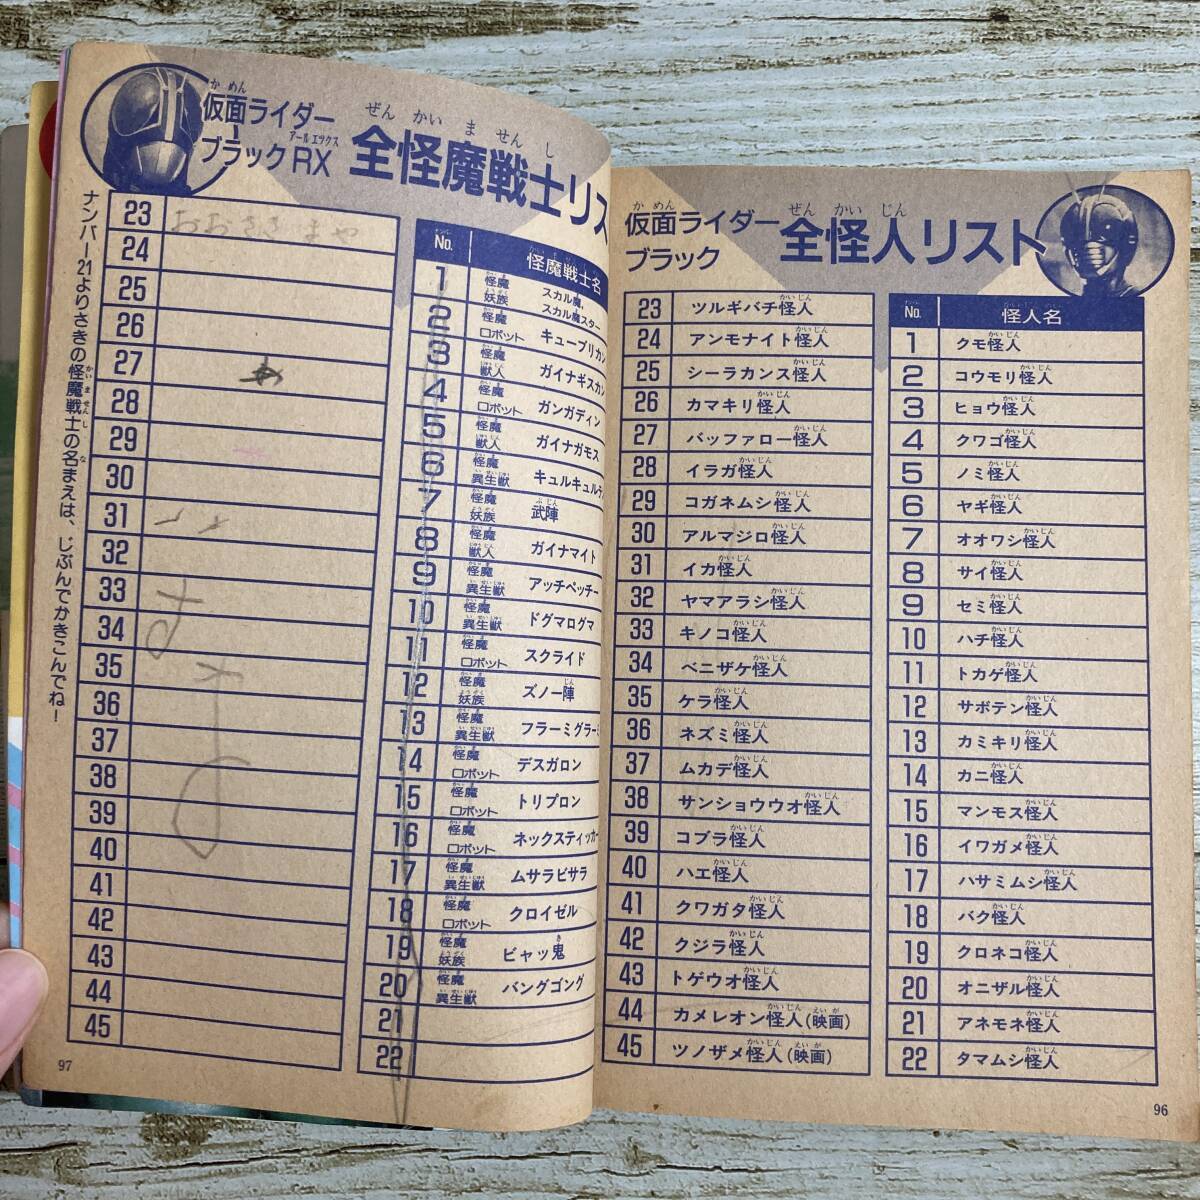 仮面ライダー
ブラック
全怪人リスト
No. 怪人名
1 クモ怪人
2 コウモリ怪人
3 ヒョウ怪人
4 クワゴ怪人
5 ノミ怪人
6 ヤギ怪人
7 オオワシ怪人
8 サイ怪人
9 セミ怪人
10 ハチ怪人
11 トカゲ怪人
12 サボテン怪人
13 カミキリ怪人
14 カニ怪人
15 マンモス怪人
16 イワガメ怪人
17 ハサミムシ怪人
18 バク怪人
19 クロネコ怪人
20 オニザル怪人
21 アネモネ怪人
22 タマムシ怪人
23 ツルギバチ怪人
24 アンモナイト怪人
25 シーラカンス怪人
26 カマキリ怪人
27 バッファロー怪人
28 イラガ怪人
29 コガネムシ怪人
30 アルマジロ怪人
31 イカ怪人
32 ヤマアラシ怪人
33 キノコ怪人
34 ベニザケ怪人
35 ケラ怪人
36 ネズミ怪人
37 ムカデ怪人
38 サンショウウオ怪人
39 コブラ怪人
40 ハエ怪人
41 クワガタ怪人
42 クジラ怪人
43 トゲウオ怪人
44 カメレオン怪人(映画)
45 ツノザメ怪人(映画)
96
仮面ライダー
ブラックRX
全怪魔戦士リス
No. 怪魔戦士名
1 怪魔妖族 スカル魔, スカル魔スター
2 怪魔ロボット キューブリカン
3 怪魔獣人 ガイナギスカン
4 怪魔ロボット ガンガディン
5 怪魔獣人 ガイナガモス
6 怪魔異生獣 キュルキュルテ
7 怪魔妖族 武陣
8 怪魔獣人 ガイナマイト
9 怪魔異生獣 アッチペッチー
10 怪魔異生獣 ドグマログマ
11 怪魔ロボット スクライド
12 怪魔妖族 ズノー陣
13 怪魔異生獣 フラーミグラーミ
14 怪魔ロボット デスガロン
15 怪魔ロボット トリプロン
16 怪魔ロボット ネックスティッカー
17 怪魔異生獣 ムサラビサラ
18 怪魔ロボット クロイゼル
19 怪魔妖族 ビャッ鬼
20 怪魔異生獣 バングゴング
21
22
23 おおさき まや
24
25
26
27
28
29
30
31
32
33
34
35
36
37
38
39
40
41
42
43
44
45
ナンバー21よりさきの怪魔戦士の名まえは、じぶんでかきこんでね!
97